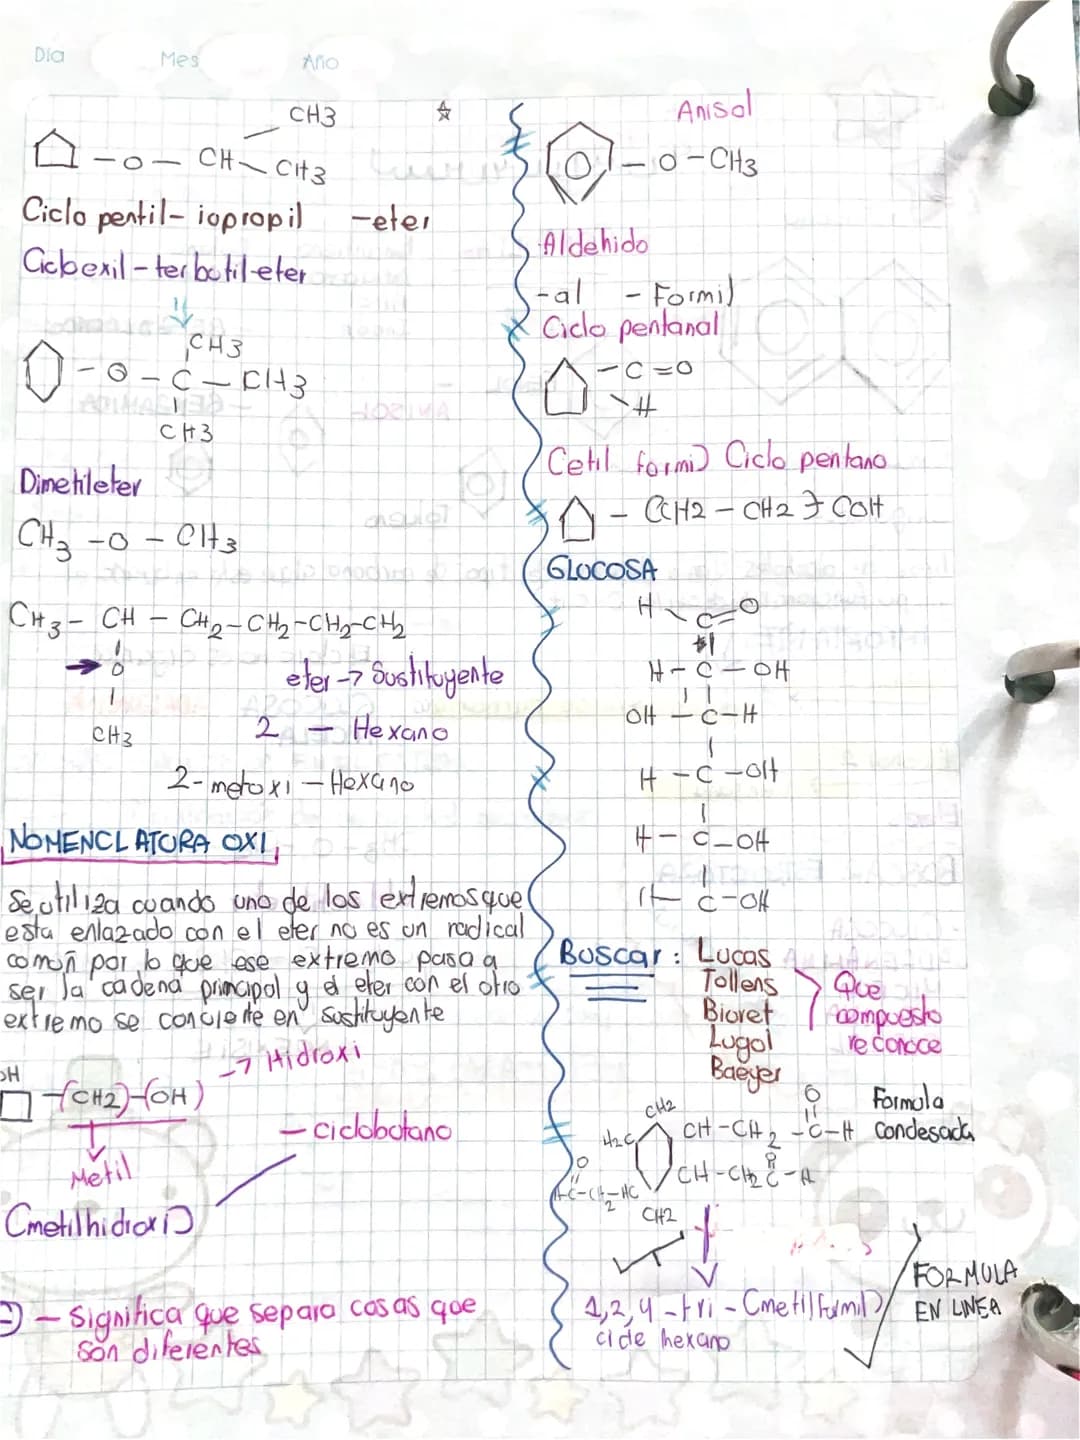 Día Mes Año
CH3
-o- CH CH3
Ciclo pentil- iopropil -eter
Cicloexil-terbutil-eter
CH3
-O-C-CH3
CH3
Dimetileter
CH3-O-CH3
CH3-CH-CH2-CH2-CH2-CH2
O
eter → Sustituyente
CH3
2 - Hexano
2-metoxi-Hexano
NOMENCLATURA OXI
Se utiliza cuando uno de los extremos que
esta enlazado con el eter no es un radical
común por lo que ese extremo pasa a
ser la cadena principal y el eter con el otro
extremo se concierte en sustituyente
→ Hidroxi
OH
-(CH2)-(OH)
- ciclobutano
Metil
Cmetilhidroxi)
- Significa que separa cosas que
son diferentes
Anisol
-O-CH3
Aldehido
-al - Formil
Ciclo pentanal
-C=O
H
Cetil formil Ciclo pentano
- (CH2-CH2) COH
GLUCOSA
H C=O
H-C-OH
OH-C-H
H-C-OH
H-C-OH
H-C-OH
Buscar: Lucas
Tollens
Biuret
Lugol
Baeyer
Que
compuesto
reconoce
O Formula
CH2 CH-CH2-C-H Condesada
H2C
O
CH-CH2 C-H
O
H-C-CH2-HC
CH2
1,2,4-tri-Cmetilformil)
ciclehexano
FORMULA
EN LINEA